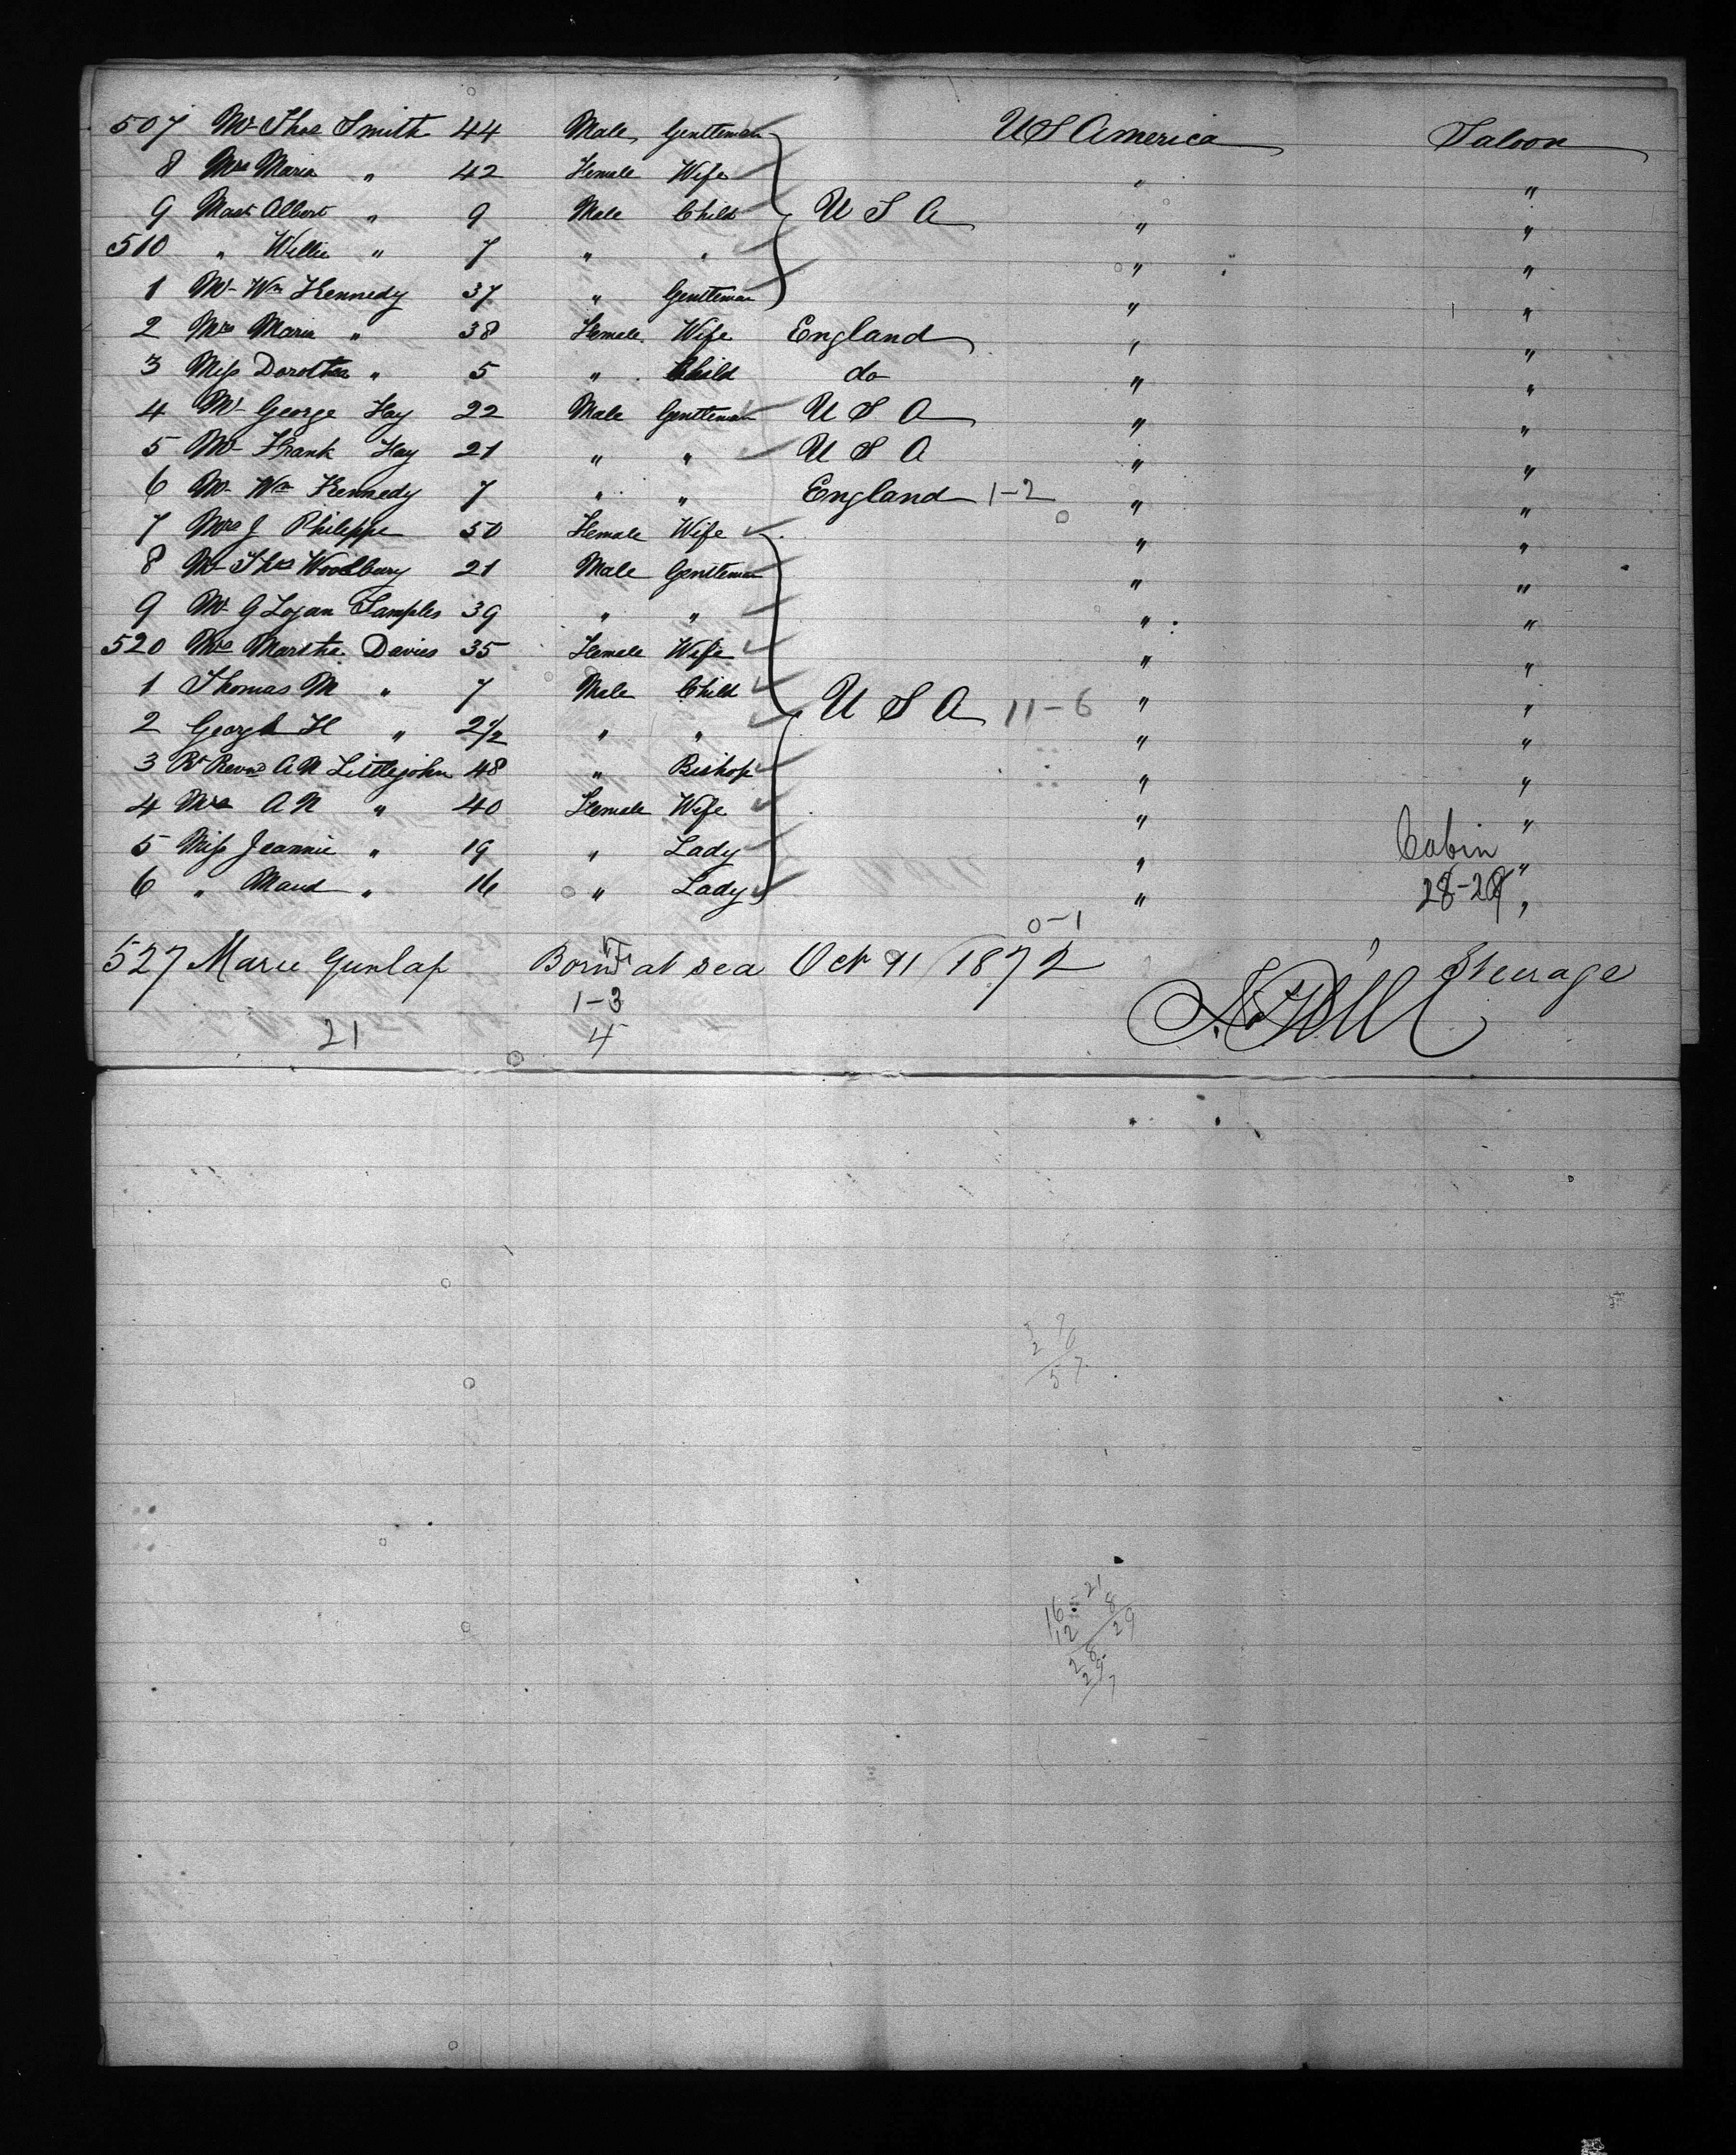 507 Mr Thos Smith 44 Male Gentleman US America Saloon
8 Mrs Maria " 42 Female Wife " "
9 Mast Albert " 9 Male Child U S A " "
510 " Willie " 7 " " " "
1 Mr Wm Kennedy 37 " Gentleman " "
2 Mrs Maria " 38 Female Wife England " "
3 Miss Dorothea " 5 " Child do " "
4 Mr George Hay 22 Male Gentleman U S A " "
5 Mr Frank Hay 21 " " U S A " "
6 Mr Wm Kennedy 7 " " England 1-2 " "
7 Mrs J Philippe 50 Female Wife " "
8 Mr Thos Woodbury 21 Male Gentleman " "
9 Mr G Logan Samples 39 " " " "
520 Mrs Martha Davies 35 Female Wife " "
1 Thomas M " 7 Male Child U S A 11-6 " "
2 George H " 2 1/2 " " " "
3 Rt Revnd A N Littlejohn 48 " Bishop " "
4 Mrs A N " 40 Female Wife " "
5 Miss Jeannie " 19 " Lady " Cabin "
6 " Maud " 16 " Lady " 28-29 "
0-1
527 Marie Gunlap Born at sea Oct 11 1872 Steerage
1-3
21 4
57
16 21
12 8
28 29
29